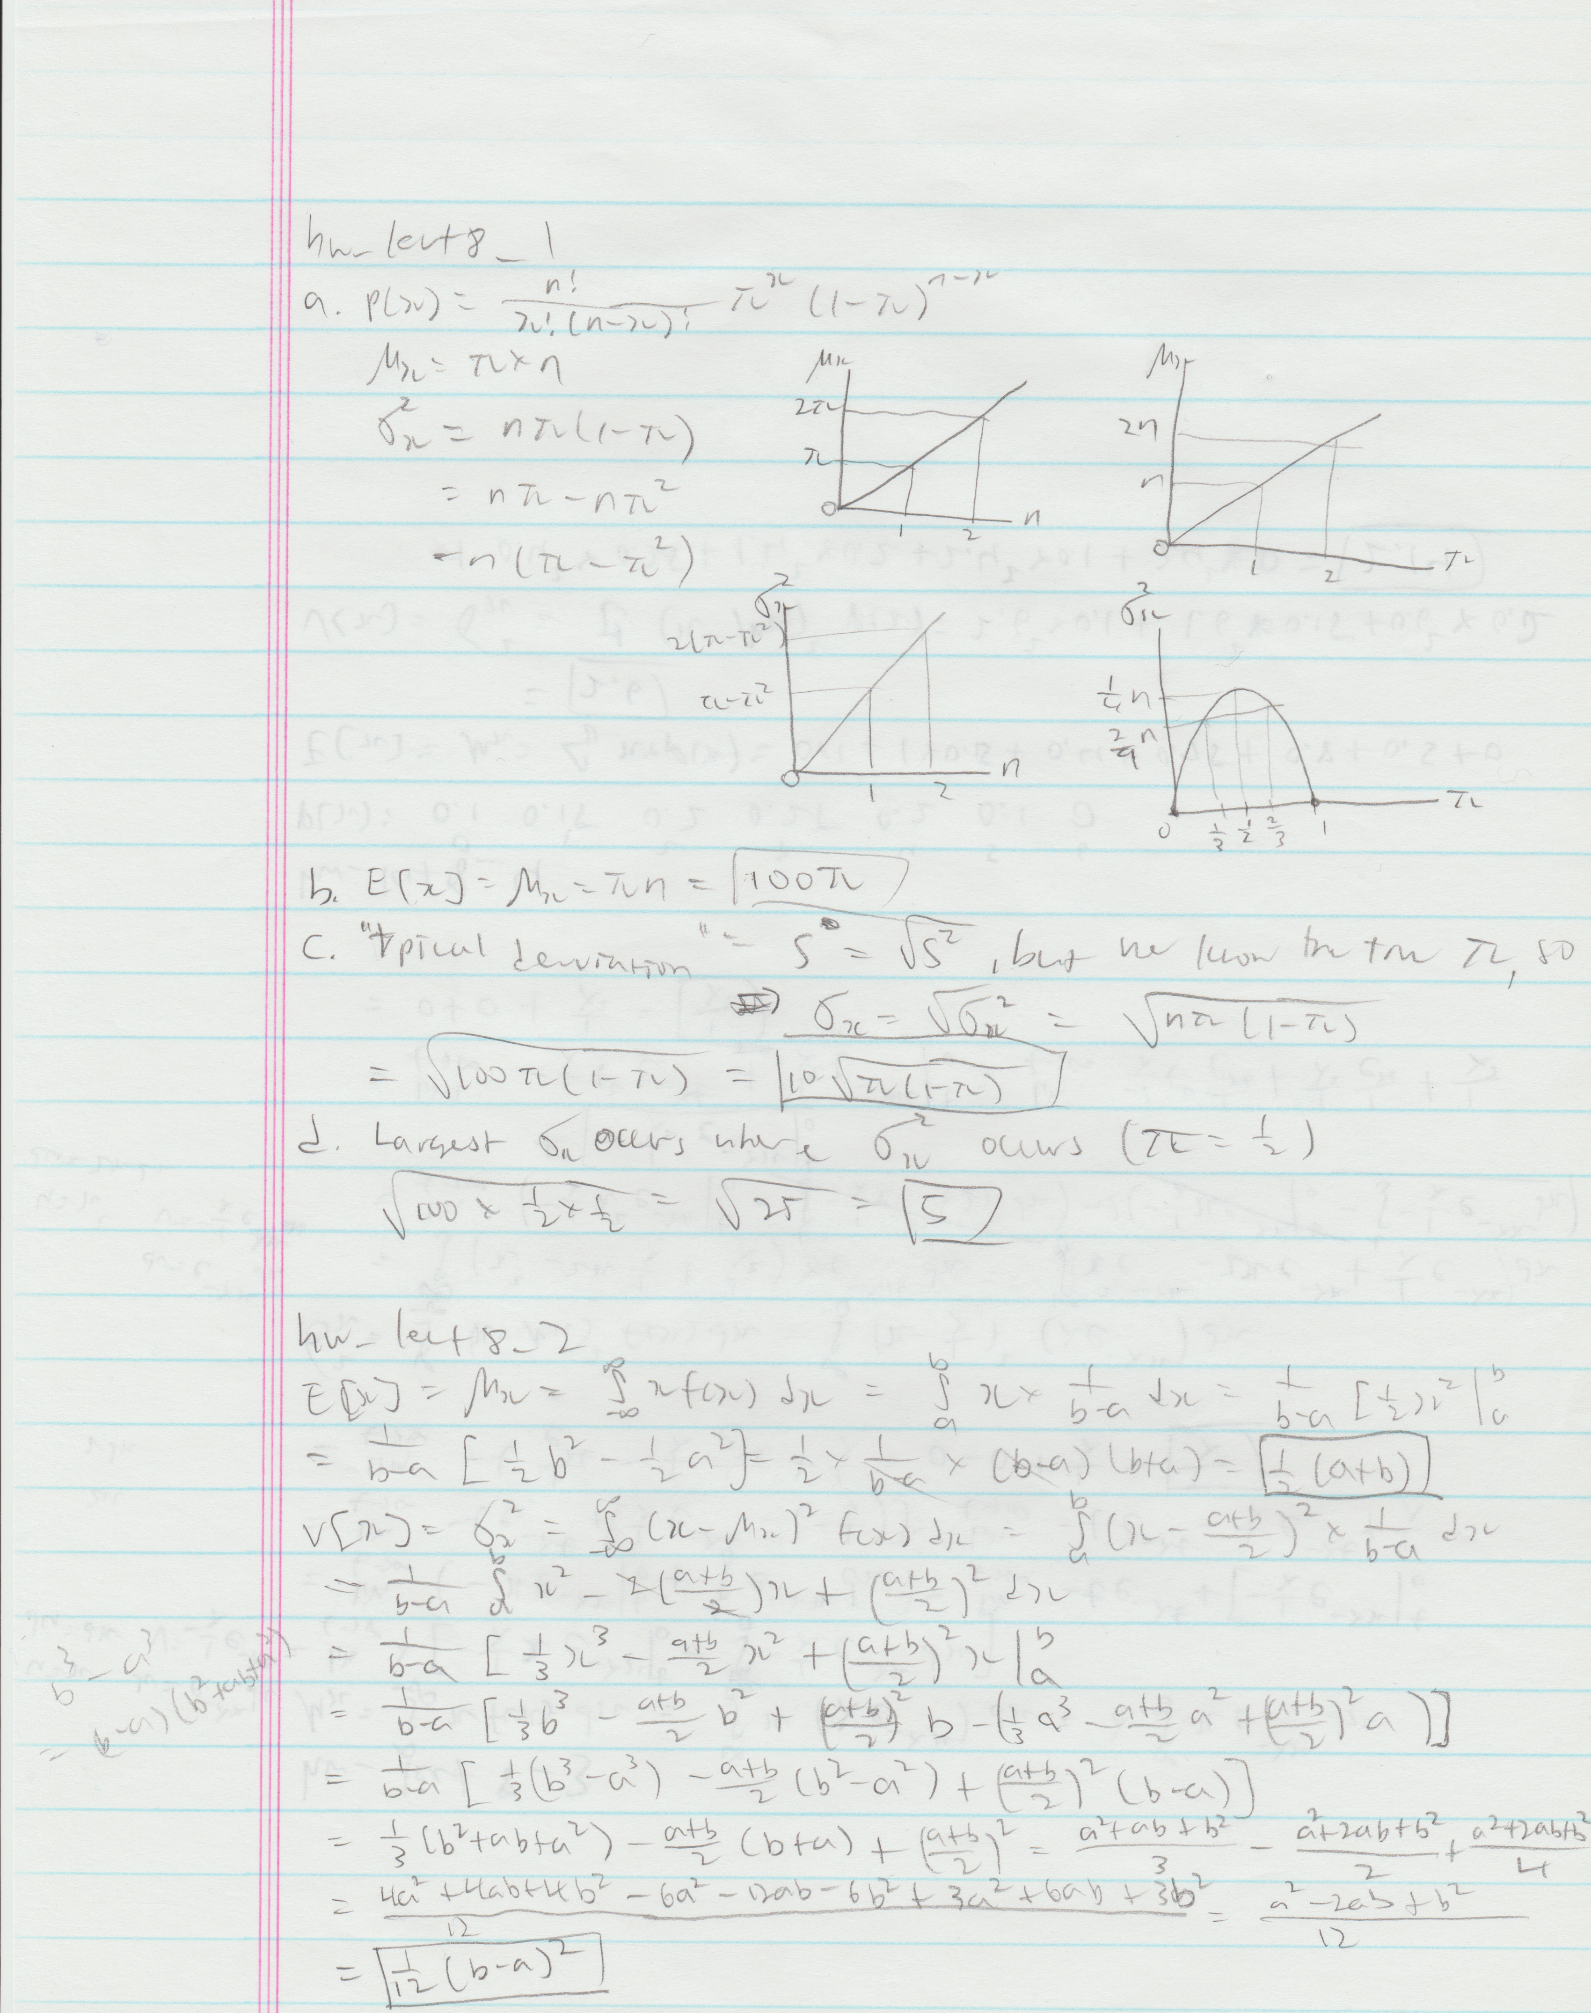 hw_lect8_1
a. P(x) = n! / x!(n-x)! π^x (1-π)^(n-x)
μx = π×n
σx² = nπ(1-π)
= nπ - nπ²
= n(π-π²)
μx 2π π 0 1 2 n
μx 2n n 0 1 2 π
σx² 2(π-π²) π-π² 0 1 2 n
σx² 1/4 n 2/9 n 0 1/3 1/2 2/3 1 π
b. E[x] = μx = πn = 100π
c. "typical deviation" = S = √S², but we know the true π, so
σx = √σx² = √nπ(1-π)
= √100π(1-π) = 10√π(1-π)
d. Largest σx occurs where σx² occurs (π = 1/2)
√100 × 1/2 × 1/2 = √25 = 5
hw_lect8_2
E[x] = μx = ∫_-∞^∞ x f(x) dx = ∫_a^b x × 1/(b-a) dx = 1/(b-a) [1/2 x² |_a^b
= 1/(b-a) [1/2 b² - 1/2 a²] = 1/2 × 1/(b-a) × (b-a)(b+a) = 1/2 (a+b)
V[x] = σx² = ∫_-∞^∞ (x-μx)² f(x) dx = ∫_a^b (x - (a+b)/2)² × 1/(b-a) dx
= 1/(b-a) ∫_a^b x² - 2((a+b)/2)x + ((a+b)/2)² dx
= 1/(b-a) [1/3 x³ - (a+b)/2 x² + ((a+b)/2)² x |_a^b
= 1/(b-a) [1/3 b³ - (a+b)/2 b² + ((a+b)/2)² b - (1/3 a³ - (a+b)/2 a² + ((a+b)/2)² a)]
b³ - a³
= (b-a)(b²+ab+a²)
= 1/(b-a) [1/3 (b³-a³) - (a+b)/2 (b²-a²) + ((a+b)/2)² (b-a)]
= 1/3 (b²+ab+a²) - (a+b)/2 (b+a) + ((a+b)/2)² = (a²+ab+b²)/3 - (a²+2ab+b²)/2 + (a²+2ab+b²)/4
= (4a²+4ab+4b² - 6a² - 12ab - 6b² + 3a² + 6ab + 3b²)/12 = (a²-2ab+b²)/12
= 1/12 (b-a)²